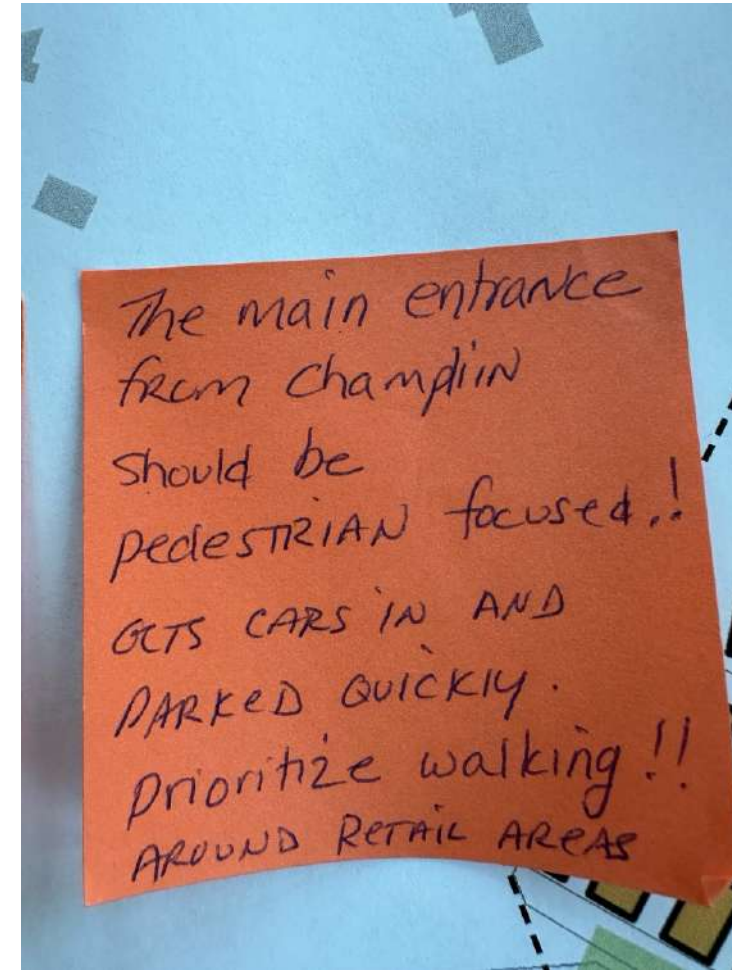 The main entrance
from Champlin
should be
pedestRIAN focused.!
GETS CARS IN AND
PARKED QUICKLY.
prioritize walking!!
AROUND RETAIL AREAS